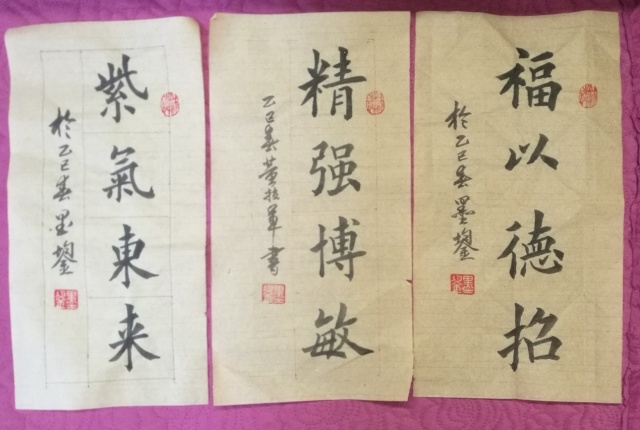 福以德招
於乙巳春墨鋆
精强博敏
乙巳春黄技军書
紫氣東来
於乙巳春墨鋆